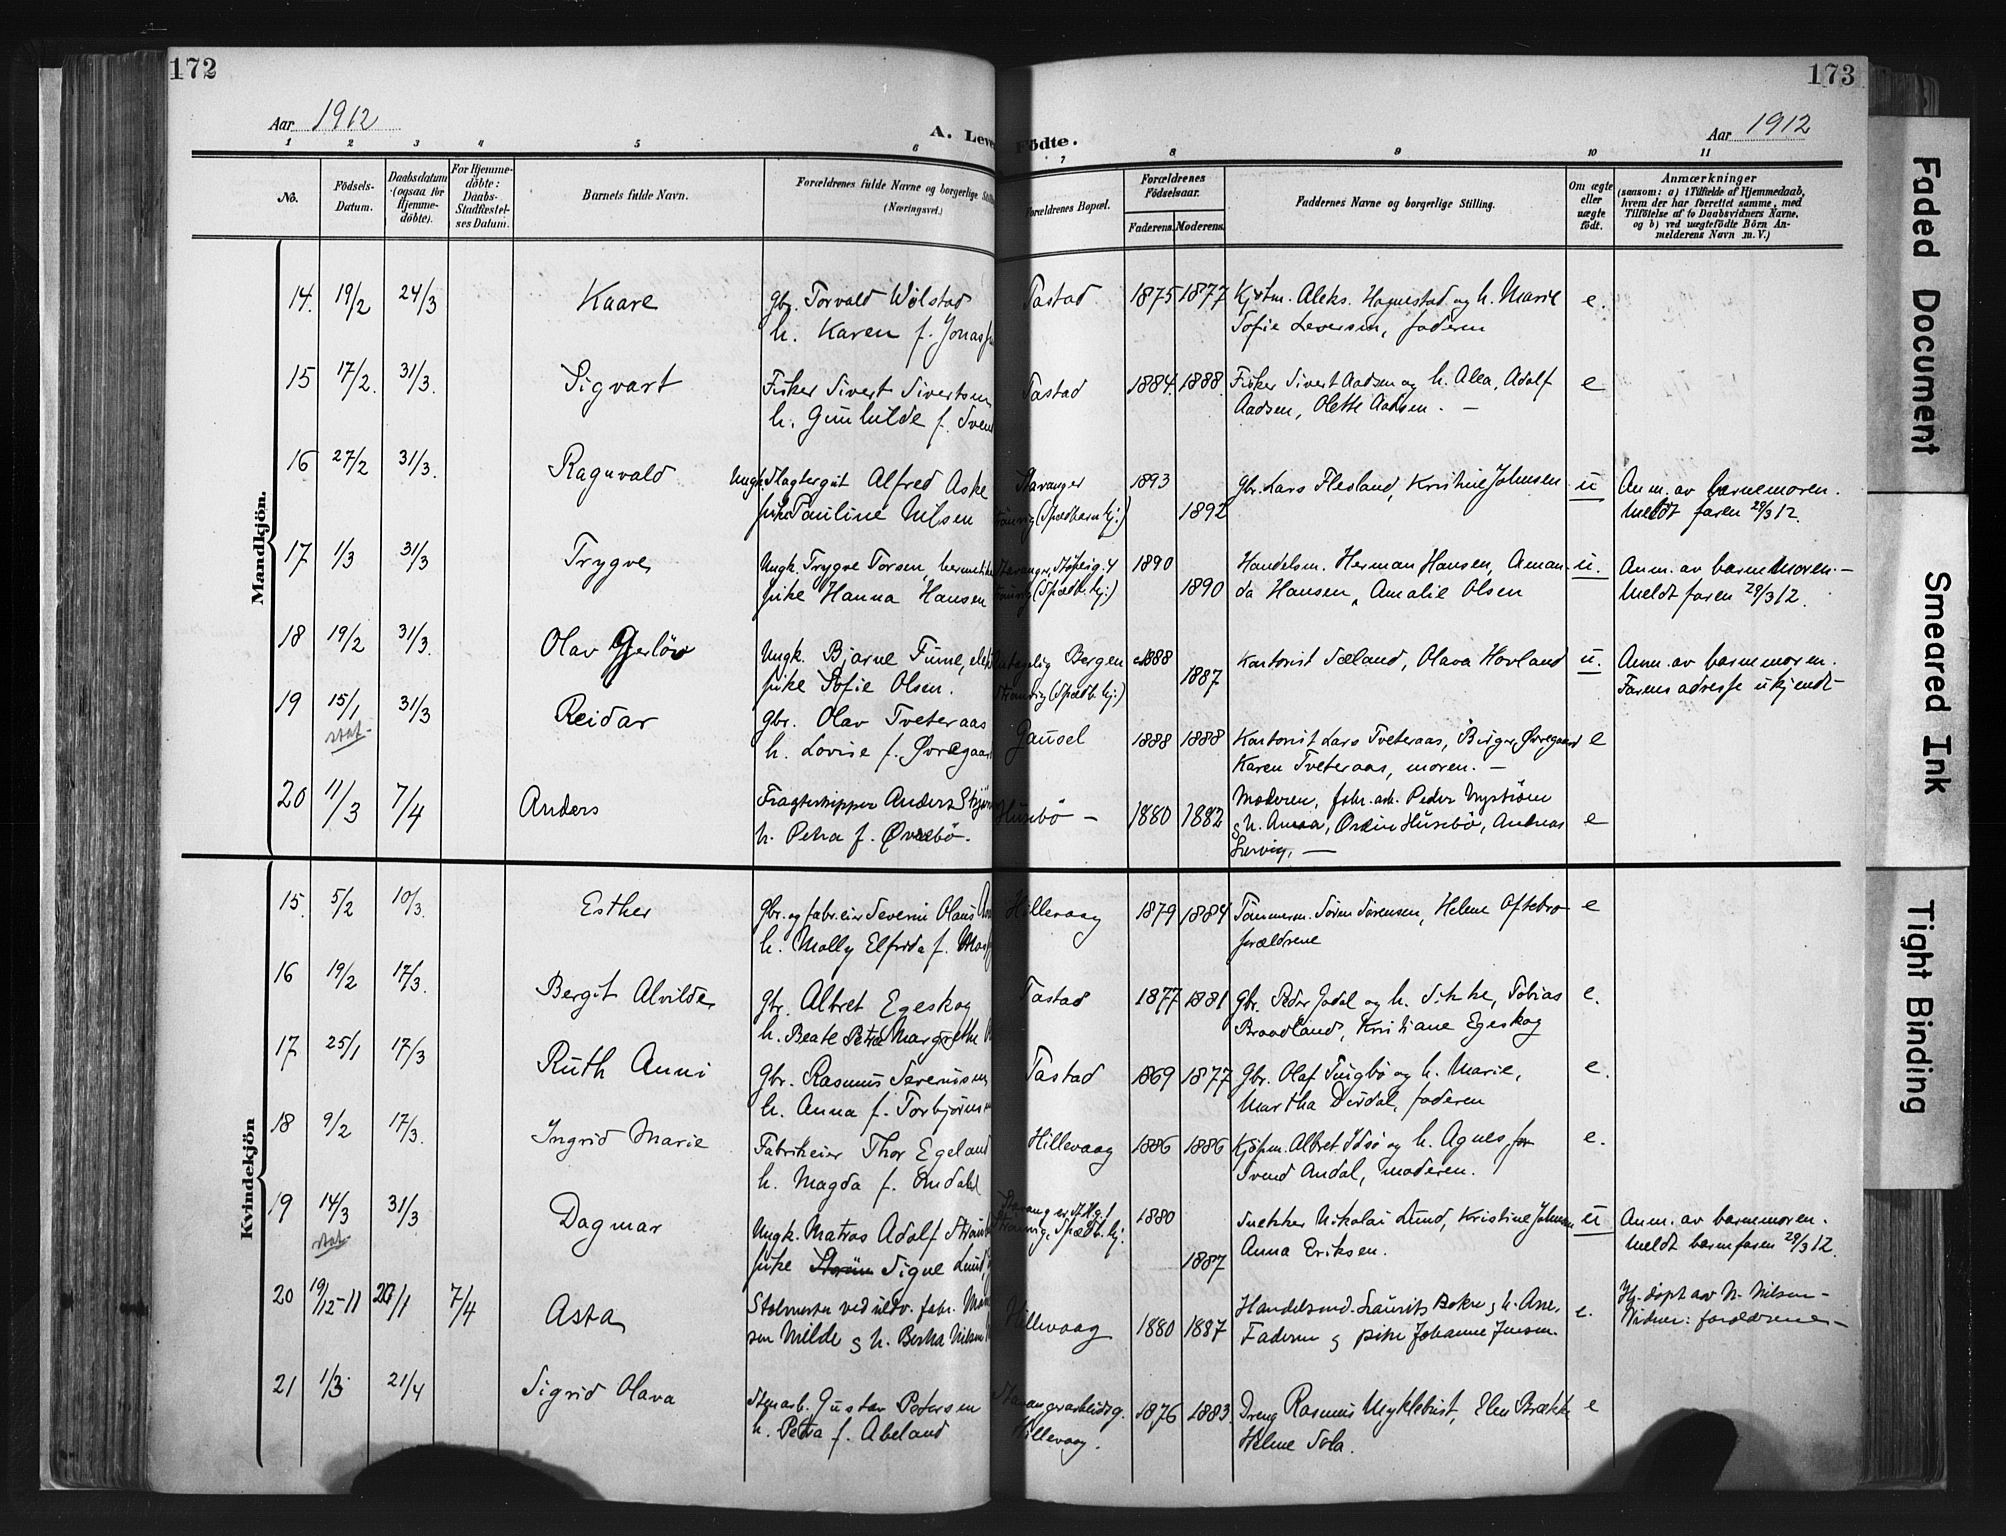 172
173
Aar 1912
A. Leve Födte.
Aar 1912
1 2 3 4 5 6 7 8 9 10 11
No.
Födsels-Datum.
Daabsdatum (ogsaa for Hjemme-döbte).
For Hjemme-döbte: Daabs-Stadfæstel-ses Datum.
Barnets fulde Navn.
Forældrenes fulde Navne og borgerlige Stilling (Næringsvei.)
Forældrenes Bopæl.
Forældrenes Födselsaar.
Faderens. Moderens.
Faddernes Navne og borgerlige Stilling.
Om ægte eller uægte födt.
Anmærkninger
(saasom: a) i Tilfælde af Hjemmedaab, hvem der har forrettet samme, med Tilföielse af to Daabsvidners Navne, og b) ved uægtefödte Börn An-melderens Navn m. V.)
Mandkjön.
14. 19/2 24/3 Kaare gbr. Torvald Wølstad Tastad 1875 1877 Kjøtm. Aleks. Hognestad og h. Marie e.
h. Karen f. Jonas Sofie Leversen, faderen
15 17/2. 31/3. Sigvart Fisker Sivert Sivertsen Tastad 1884. 1888. Fisker Sivert Aadsen og h. Alea, Adolf e
h. Gunhilde f. Svend Aadsen, Olette Aadsen. –
16 27/2 31/3. Ragnvald Ungk. Slagtergut Alfred Aske Stavanger 1893 gbr. Lars Flesland, Kristine Johnsen u Anm. av barnemoren.
pike Pauline Nilsen Strömvig (Spædbarnhj.) 1892 Meldt faren 29/3 12.
17 1/3 31/3 Trygve Ungk. Trygve Torsen, hermetik Stavanger, 1890 Handelsm. Herman Hansen, Aman- u. Anm. av barnemoren. –
pike Hanna Hansen (Spædb. hj.) 1890 da Hansen, Amalie Olsen Meldt faren 29/3 12.
18 19/2 31/3. Olav Gerløv Ungk. Bjarne Fume, Bergen 1888 Kontorist Sæland, Olava Hovland u. Anm. av barnemoren.
pike Sofie Olsen. (Spædb. hj.) 1887 Farens adresse ukjendt –
19 15/1 31/3 Reidar gbr. Olav Tveteraas Gausel 1888 1888 Kontorist Lars Tveteraas, Birger Øvregaard e
stat. h. Lovise f. Øvregaar Karen Tveteraas, moren. –
20 11/3 7/4 Anders Fragteskipper Anders Husebö – 1880 1882 Moderen, fabr. arb. Peder Nyström e
h. Petra f. Øvrebö. og h. Anna, Husebö, Andreas
Kvindekjön
15. 5/2 10/3. Esther gbr. og fabr. eier Severin Olaus Hillevaag 1879 1884 Tömmerm. Sören Sörensen, Helene Oftebro e
h. Molly Elfrida f. forældrene
16 19/2 17/3. Bergit Alvilde gbr. Albret Egeskog Tastad 1877 1881 gbr. Peder Jadal og h. Sikke, Tobias e.
h. Beate Petra Margrethe Braadland, Kristiane Egeskog
17 25/1 17/3 Ruth Anni gbr. Rasmus Severinsen Tastad 1869 1877 gbr. Olaf Tungbø og h. Marie, e.
h. Anna f. Torbjørnsen Martha Dirdal, faderen
18 9/2 17/3. Ingrid Marie Fabrikeier Thor Egeland Hillevaag 1886 1886 Kjöpm. Albret Idsö og h. Agnes, e.
h. Magda f. Andahl Svend Andal, moderen.
19 14/3 31/3 Dagmar Ungk. Matros Adolf Spædb. hj. 1880 Snekker Nikolai Lund, Kristine Johnsen u Anm. av barnemoren.
stat. pike Signe Lund, 1887 Anna Eriksen. Meldt barnefaren 29/3 12.
20 19/12–11 /1 7/4 Asta Hillevaag 1880 1887 Handelsmd. Laurits Bokn og h. Ane, e. Hj. döpt av N. Nilsen –
sen Milde og h. Berta Nilsen Faderen og pike Johanne Jensen. Vidner: forældrene –
21 1/3 21/4 Sigrid Olava Stenarb. Gustav Petersen 1876 1883. Dreng Rasmus Myklebust, Elen Brække e
h. Petra f. Abeland Hillevaag. Helene Sola.
Faded Document
Smeared Ink
Tight Binding